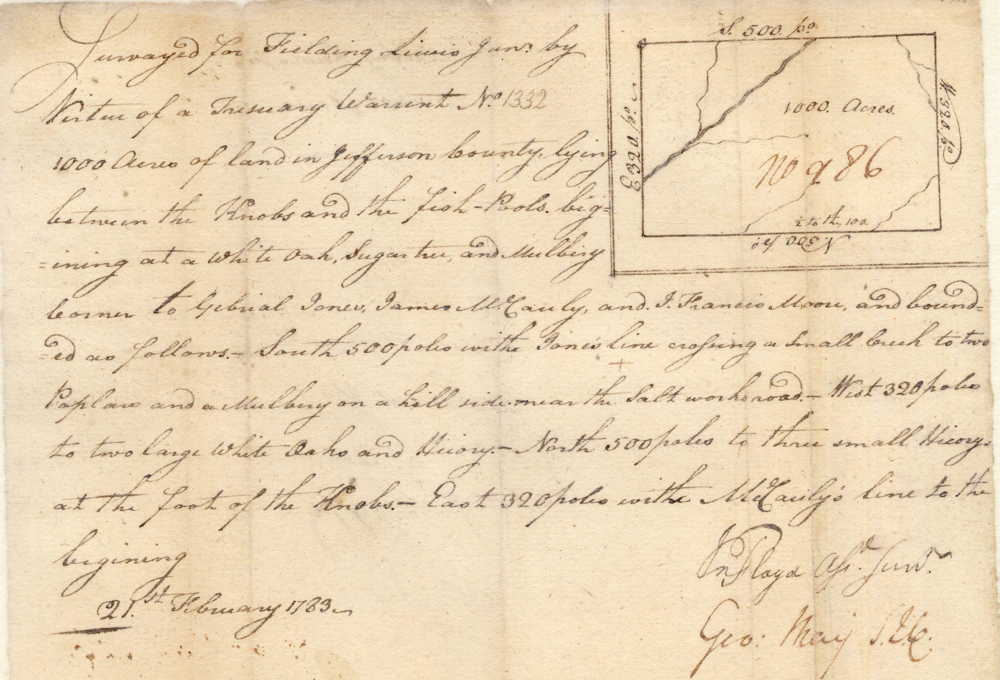 Survayed for Fielding Lewis Junr. by
Virtue of a Tresuary Warrent No. 1332
1000 Acres of land in Jefferson County, lying
between the Knobs and the fish-Pools. big=
=ining at a White Oak, Sugartree, and Mulbery
Corner to Gebrial Jones, James McCauly, and J. Francis Moore, and bound=
=ed as follows.- South 500 poles withe Jones line crossing a small Creek to two
Poplars and a Mulbery on a hill side near the Salt works road.- West 320 poles
to two large White Oaks and Hicory.- North 500 poles to three small Hicorys
at the foot of the Knobs.- East 320 poles withe McCauly's line to the
bigining
21.st February 1783
Jno Floyd Asst. Survr.
Geo: May S.J.C.
S. 500 po.
W 320 po
N. 500 po.
E 320 po.
1000. Acres.
No 986
to the, 100